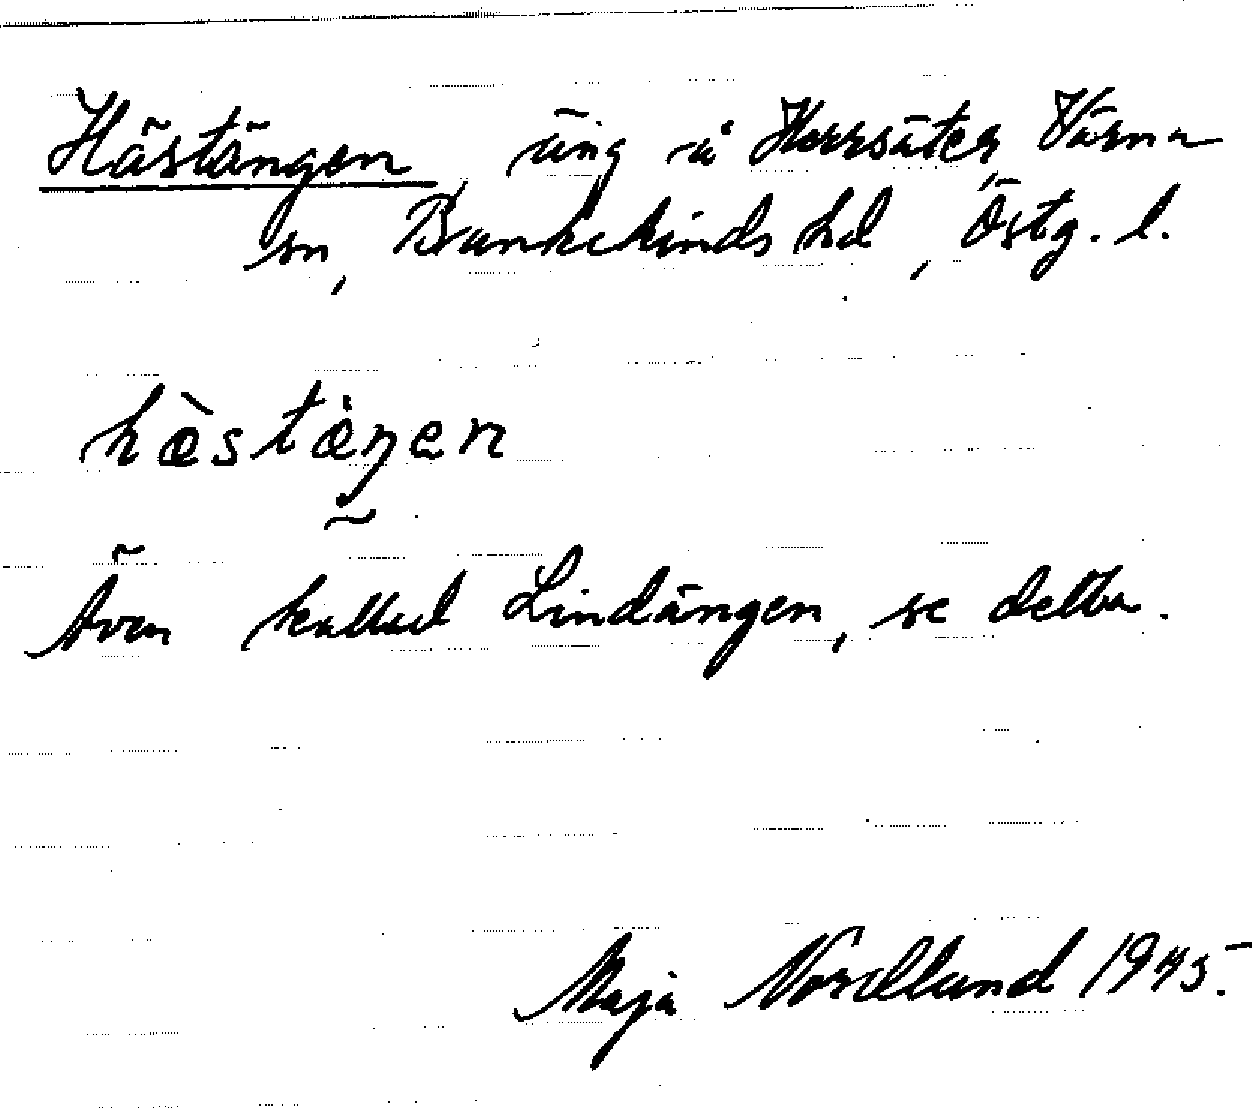 Hästängen, äng å Herrsäter, Värna
sn, Bankekinds hd, Östg. l.
hæ̀stæ̀ŋen
Även kallad Lindängen, se detta.
Maja Nordlund 1945.